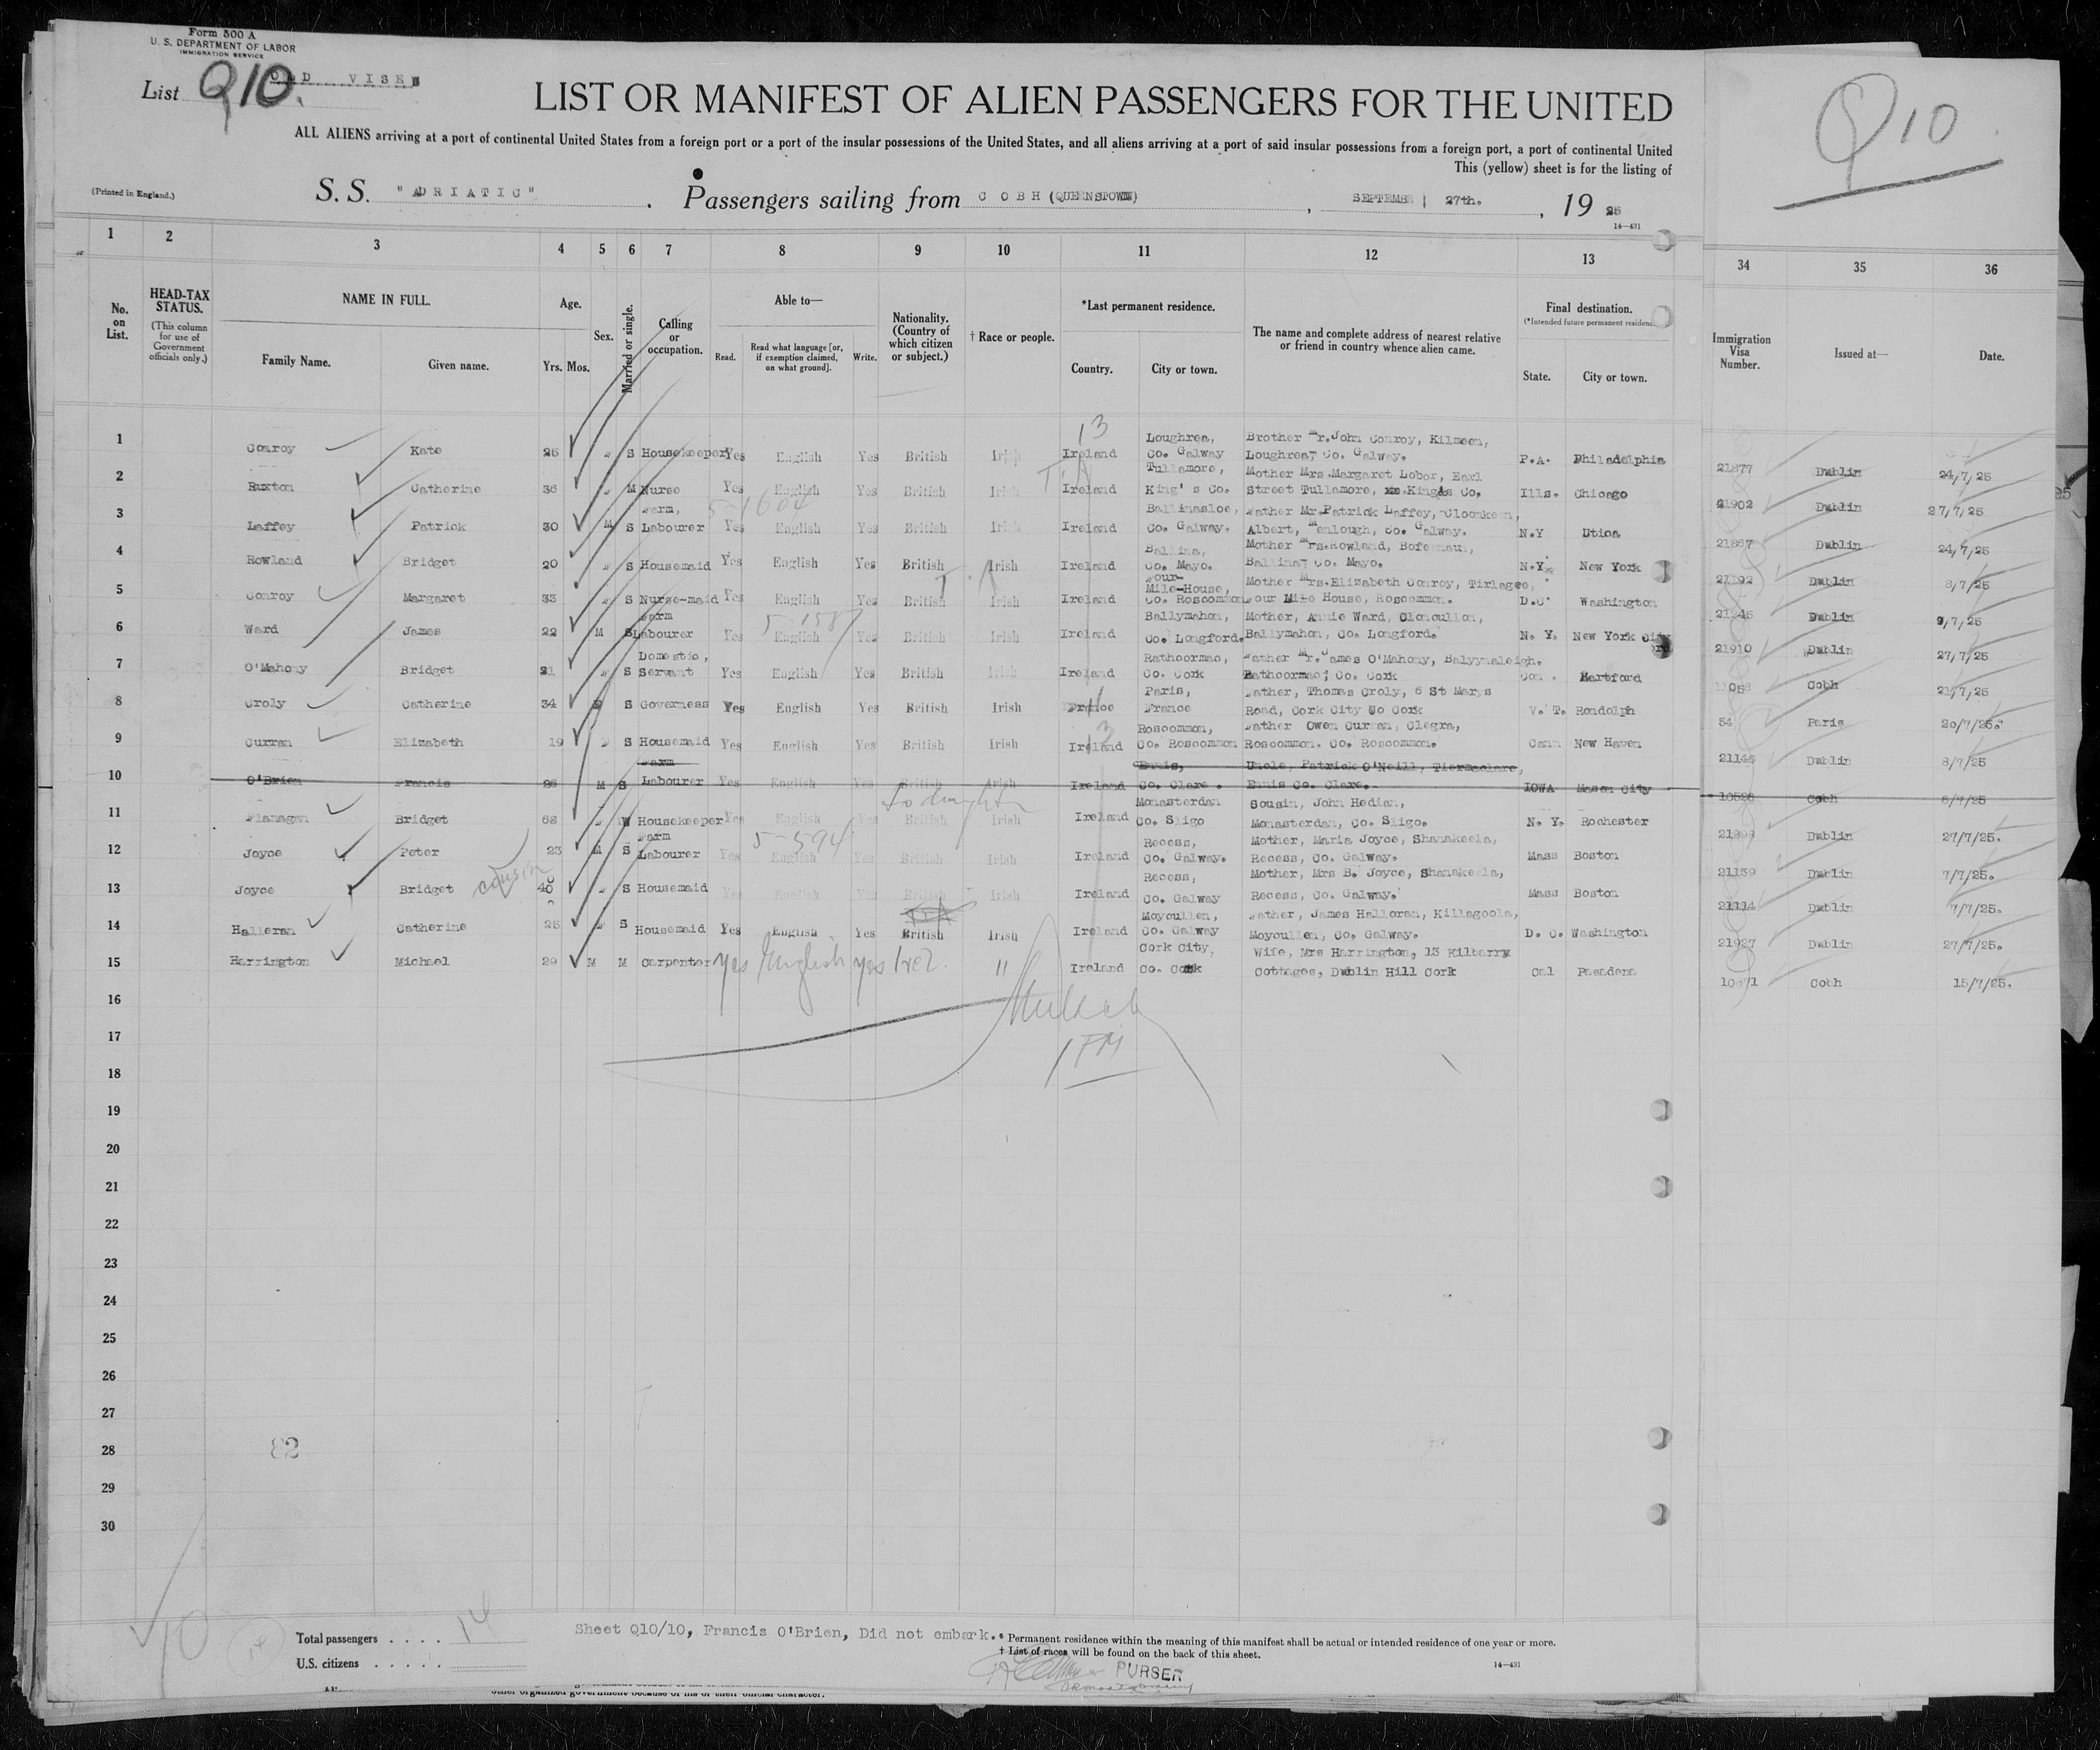 Form 500 A
U. S. DEPARTMENT OF LABOR
IMMIGRATION SERVICE
List Q10. OLD VISES
LIST OR MANIFEST OF ALIEN PASSENGERS FOR THE UNITED
Q10
ALL ALIENS arriving at a port of continental United States from a foreign port or a port of the insular possessions of the United States, and all aliens arriving at a port of said insular possessions from a foreign port, a port of continental United
This (yellow) sheet is for the listing of
(Printed in England.) S. S. "ADRIATIC" . Passengers sailing from COBH (QUEENSTOWN) , SEPTEMBE 27th. , 19 25
14—431
1 2 3 4 5 6 7 8 9 10 11 12 13 34 35 36
No. on List. HEAD-TAX STATUS. (This column for use of Government officials only.) NAME IN FULL. Family Name. Given name. Age. Yrs. Mos. Sex. Married or single. Calling or occupation. Able to— Read. Read what language [or, if exemption claimed, on what ground]. Write. Nationality. (Country of which citizen or subject.) † Race or people. *Last permanent residence. Country. City or town. The name and complete address of nearest relative or friend in country whence alien came. Final destination. (*Intended future permanent residence State. City or town. Immigration Visa Number. Issued at— Date.
13
1 Conroy Kate 25 S Housekeeper Yes English Yes British Irish Ireland Loughrea, Co. Galway Brother Mr. John Conroy, Kilmeen, Loughrea, Co. Galway. P.A. Philadelphia 21877 Dublin 24/7/25
2 Buxton Catherine 36 M Nurse Yes English Yes British Irish Ireland Tullamore, King's Co. Mother Mrs. Margaret Lobor, Earl Street Tullamore, Kings Co. Ills. Chicago 21902 Dublin 27/7/25
5-1604
3 Laffey Patrick 30 M S Farm, Labourer Yes English Yes British Irish Ireland Ballinasloe, Co. Galway. Father Mr. Patrick Laffey, Cloonkeen, Albert, Menlough, Co. Galway. N.Y Utica 21857 Dublin 24/7/25
4 Rowland Bridget 20 S Housemaid Yes English Yes British Irish Ireland Ballina, Co. Mayo. Mother Mrs. Rowland, Bofernaun, Ballina, Co. Mayo. N.Y. New York 21192 Dublin 8/7/25
5 Conroy Margaret 33 S Nurse-maid Yes English Yes British Irish Ireland Four-Mile-House, Co. Roscommon Mother Mrs. Elizabeth Conroy, Tirlagee, Four Mile House, Roscommon. D.C Washington 21245 Dublin 9/7/25
5-1587
6 Ward James 22 M S Farm Labourer Yes English Yes British Irish Ireland Ballymahon, Co. Longford. Mother, Annie Ward, Cloncullon, Ballymahon, Co. Longford. N. Y. New York City 21910 Dublin 27/7/25
7 O'Mahony Bridget 21 S Domestic, Servant Yes English Yes British Irish Ireland Rathcormac, Co. Cork Father Mr. James O'Mahony, Balyynaleigh. Rathcormac, Co. Cork Con . Hartford Cobh 21/7/25
8 Croly Catherine 34 S Governess Yes English Yes British Irish France Paris, France Father, Thomas Croly, 6 St Marys Road, Cork City Co Cork V. T. Rondolph 54 Paris 20/7/25.
9 Curran Elizabeth 19 S Housemaid Yes English Yes British Irish Ireland Roscommon, Co. Roscommon Father Owen Curran, Clegra, Roscommon. Co. Roscommon. Conn New Haven 21146 Dublin 8/7/25
10 O'Brien Francis 26 M S Farm Labourer Yes English Yes British Irish Ireland Ennis, Co. Clare . Uncle, Patrick O'Neill, Tiermaclare, Ennis Co. Clare. IOWA Mason City 10526 Cobh 6/7/25
to daughter
11 Flanagan Bridget 62 W Housekeeper Yes English Yes British Irish Ireland Monasterdan Co. Sligo Sousin, John Hedian, Monasterdan, Co. Sligo. N. Y. Rochester 21898 Dublin 27/7/25.
5-594
12 Joyce Peter 23 M S Farm Labourer Yes English Yes British Irish Ireland Recess, Co. Galway. Mother, Maria Joyce, Shanakeela, Recess, Co. Galway. Mass Boston 21139 Dublin 7/7/25.
cousin
13 Joyce Bridget 40 S Housemaid Yes English Yes British Irish Ireland Recess, Co. Galway Mother, Mrs B. Joyce, Shanakeela, Recess, Co. Galway. Mass Boston 21114 Dublin 7/7/25.
14 Halleran Catherine 25 S Housemaid Yes English Yes British Irish Ireland Moycullen, Co. Galway Father, James Halloran, Killagoola, Moycullen, Co. Galway. D. C. Washington 21927 Dublin 27/7/25.
15 Harrington Michael 29 M M Carpenter yes English yes Irel. " Ireland Cork City, Co. Cork Wife, Mrs Harrington, 13 Kilbarry Cottages, Dublin Hill Cork Cal Pasadena 10671 Cobh 15/7/25.
16
17
18
19
20
21
22
23
24
25
26
27
28
29
30
Total passengers . . . . 14
Sheet Q10/10, Francis O'Brien, Did not embark.
* Permanent residence within the meaning of this manifest shall be actual or intended residence of one year or more.
U.S. citizens . . . . .
† List of races will be found on the back of this sheet.
14—431
PURSER
other organized government because of his or their official character.